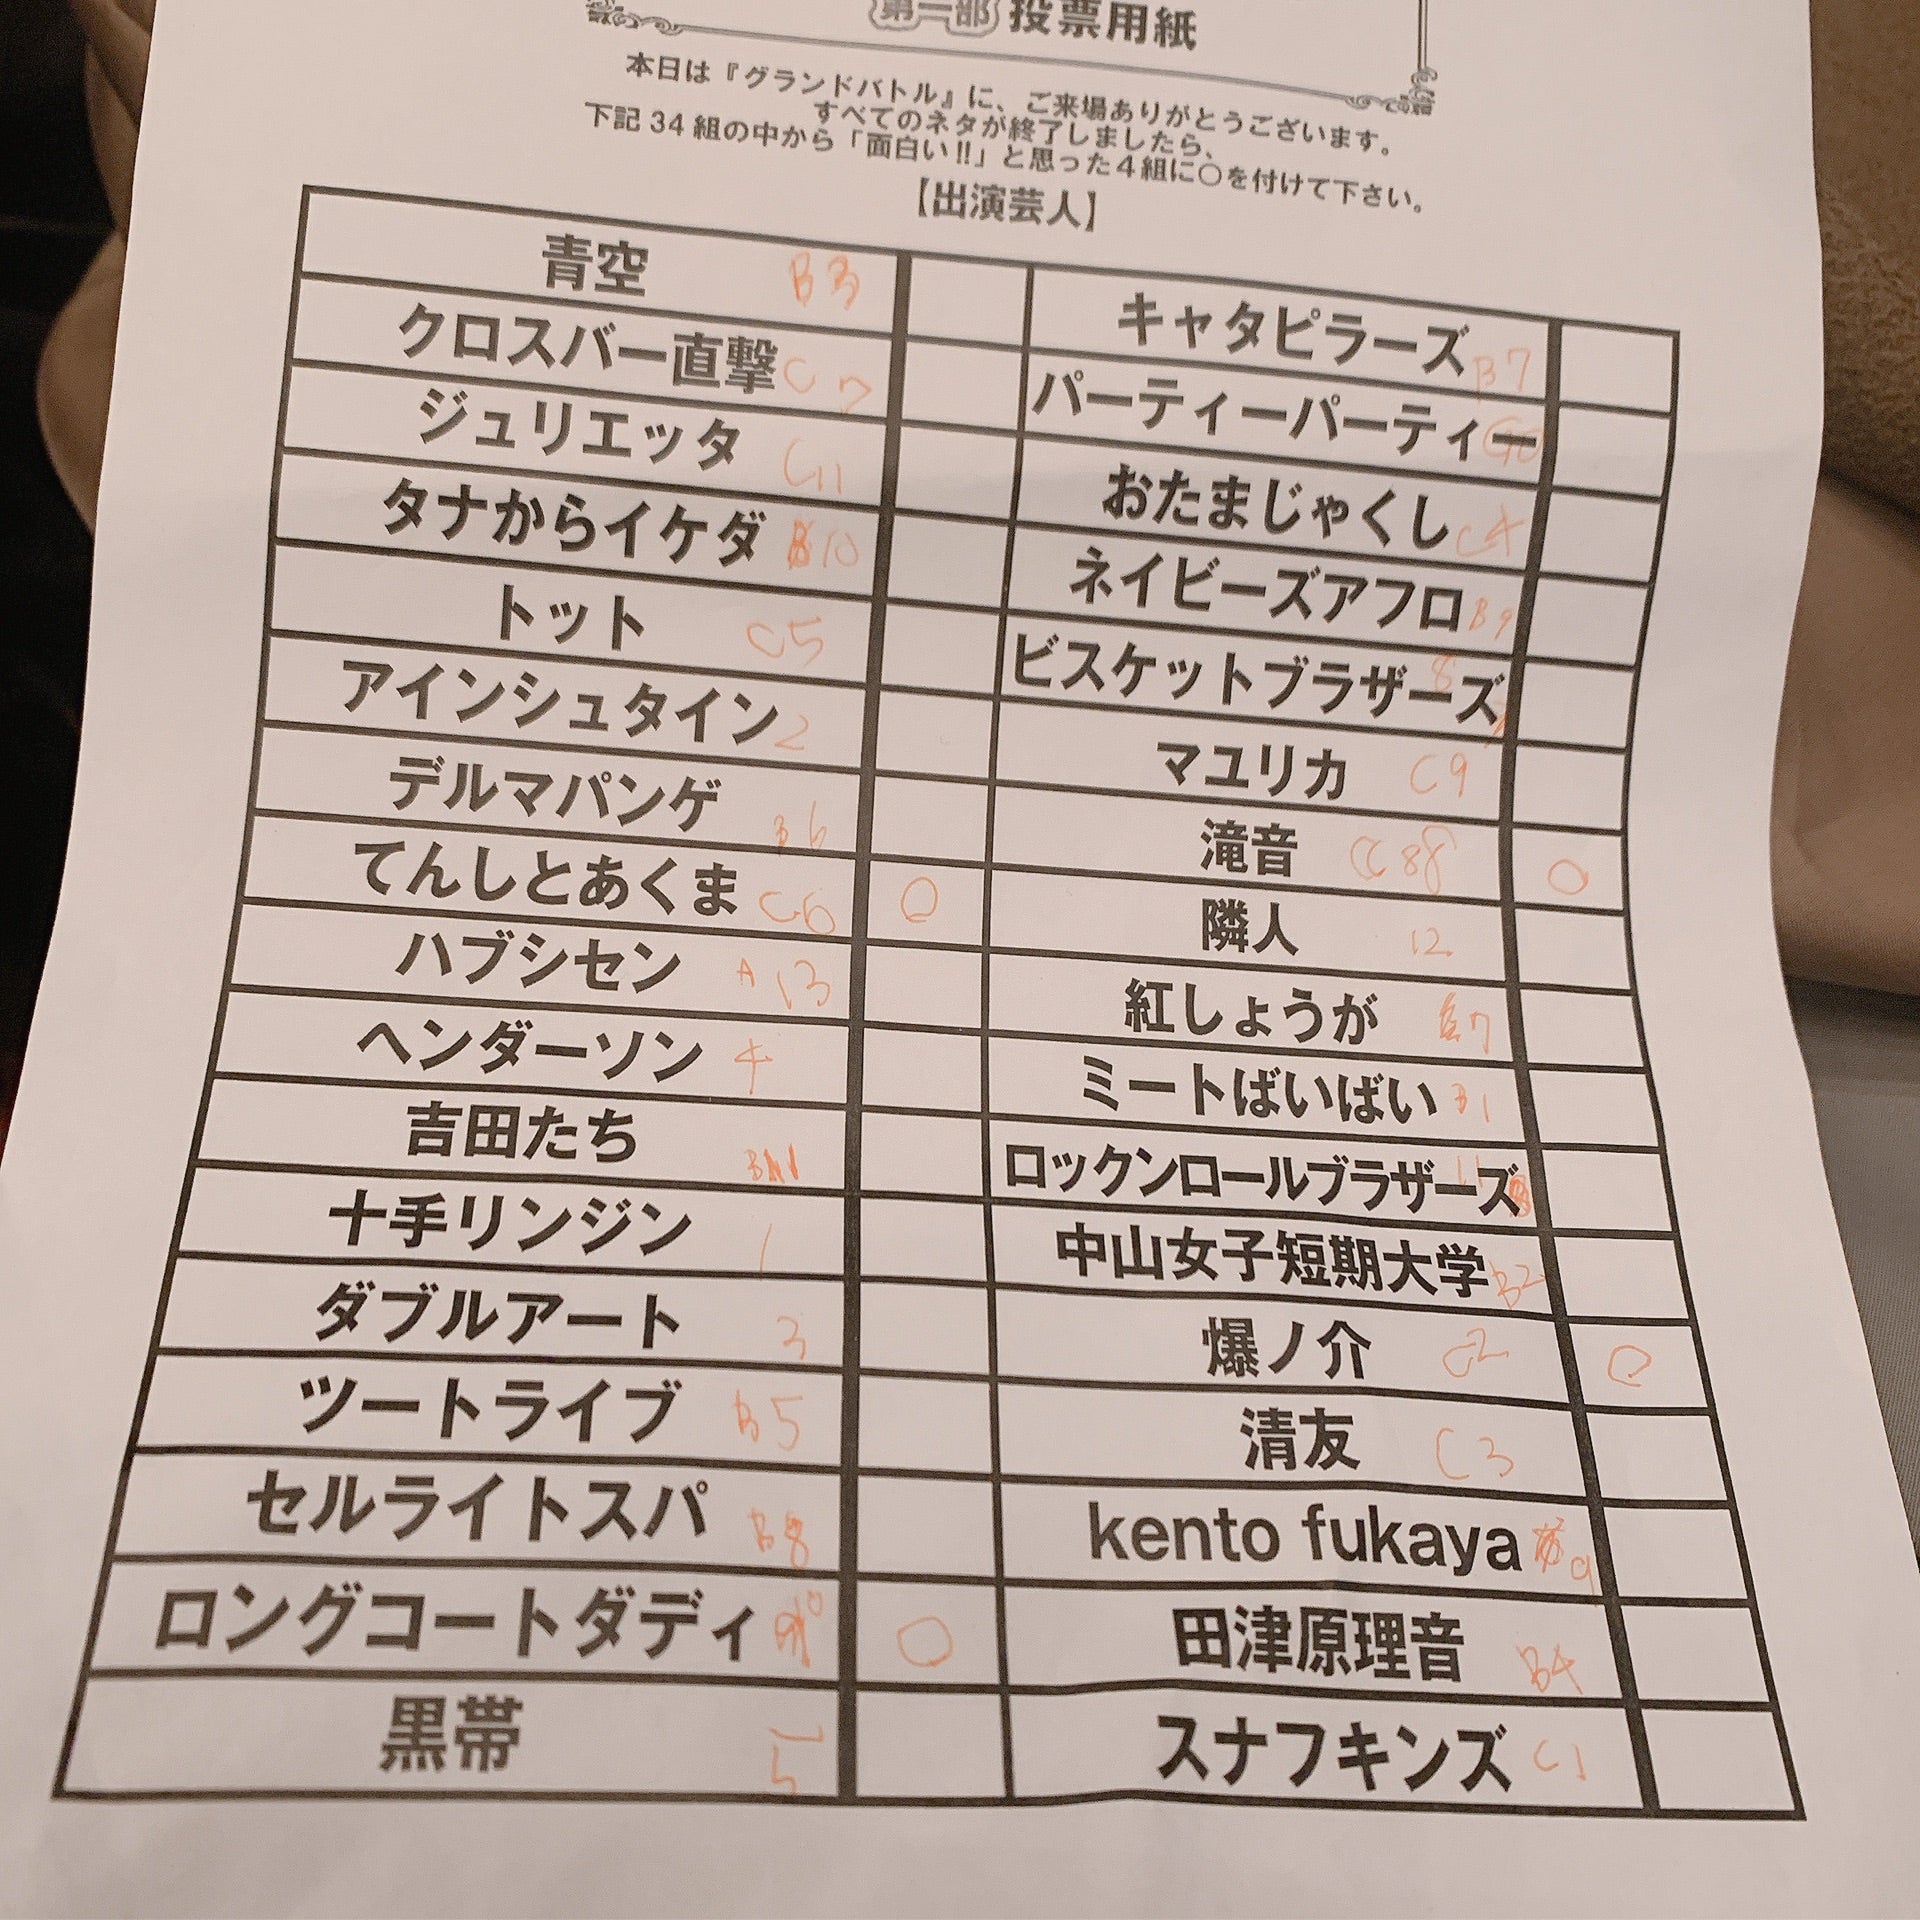 第一部 投票用紙
本日は『グランドバトル』に、ご来場ありがとうございます。
すべてのネタが終了しましたら、
下記34組の中から「面白い!!」と思った4組に○を付けて下さい。
【出演芸人】
青空 B3
キャタピラーズ B7
クロスバー直撃 C7
パーティーパーティー
ジュリエッタ C11
おたまじゃくし C4
タナからイケダ B10
ネイビーズアフロ B9
トット C5
ビスケットブラザーズ 8
アインシュタイン 2
マユリカ C9
デルマパンゲ B6
滝音 ○
てんしとあくま C6 ○
隣人 12
ハブシセン A13
紅しょうが 7
ヘンダーソン 4
ミートばいばい B1
吉田たち
ロックンロールブラザーズ
十手リンジン 1
中山女子短期大学 B2
ダブルアート 3
爆ノ介 C2 ○
ツートライブ B5
清友 C3
セルライトスパ B8
kento fukaya 9
ロングコートダディ ○
田津原理音 B4
黒帯 5
スナフキンズ C1